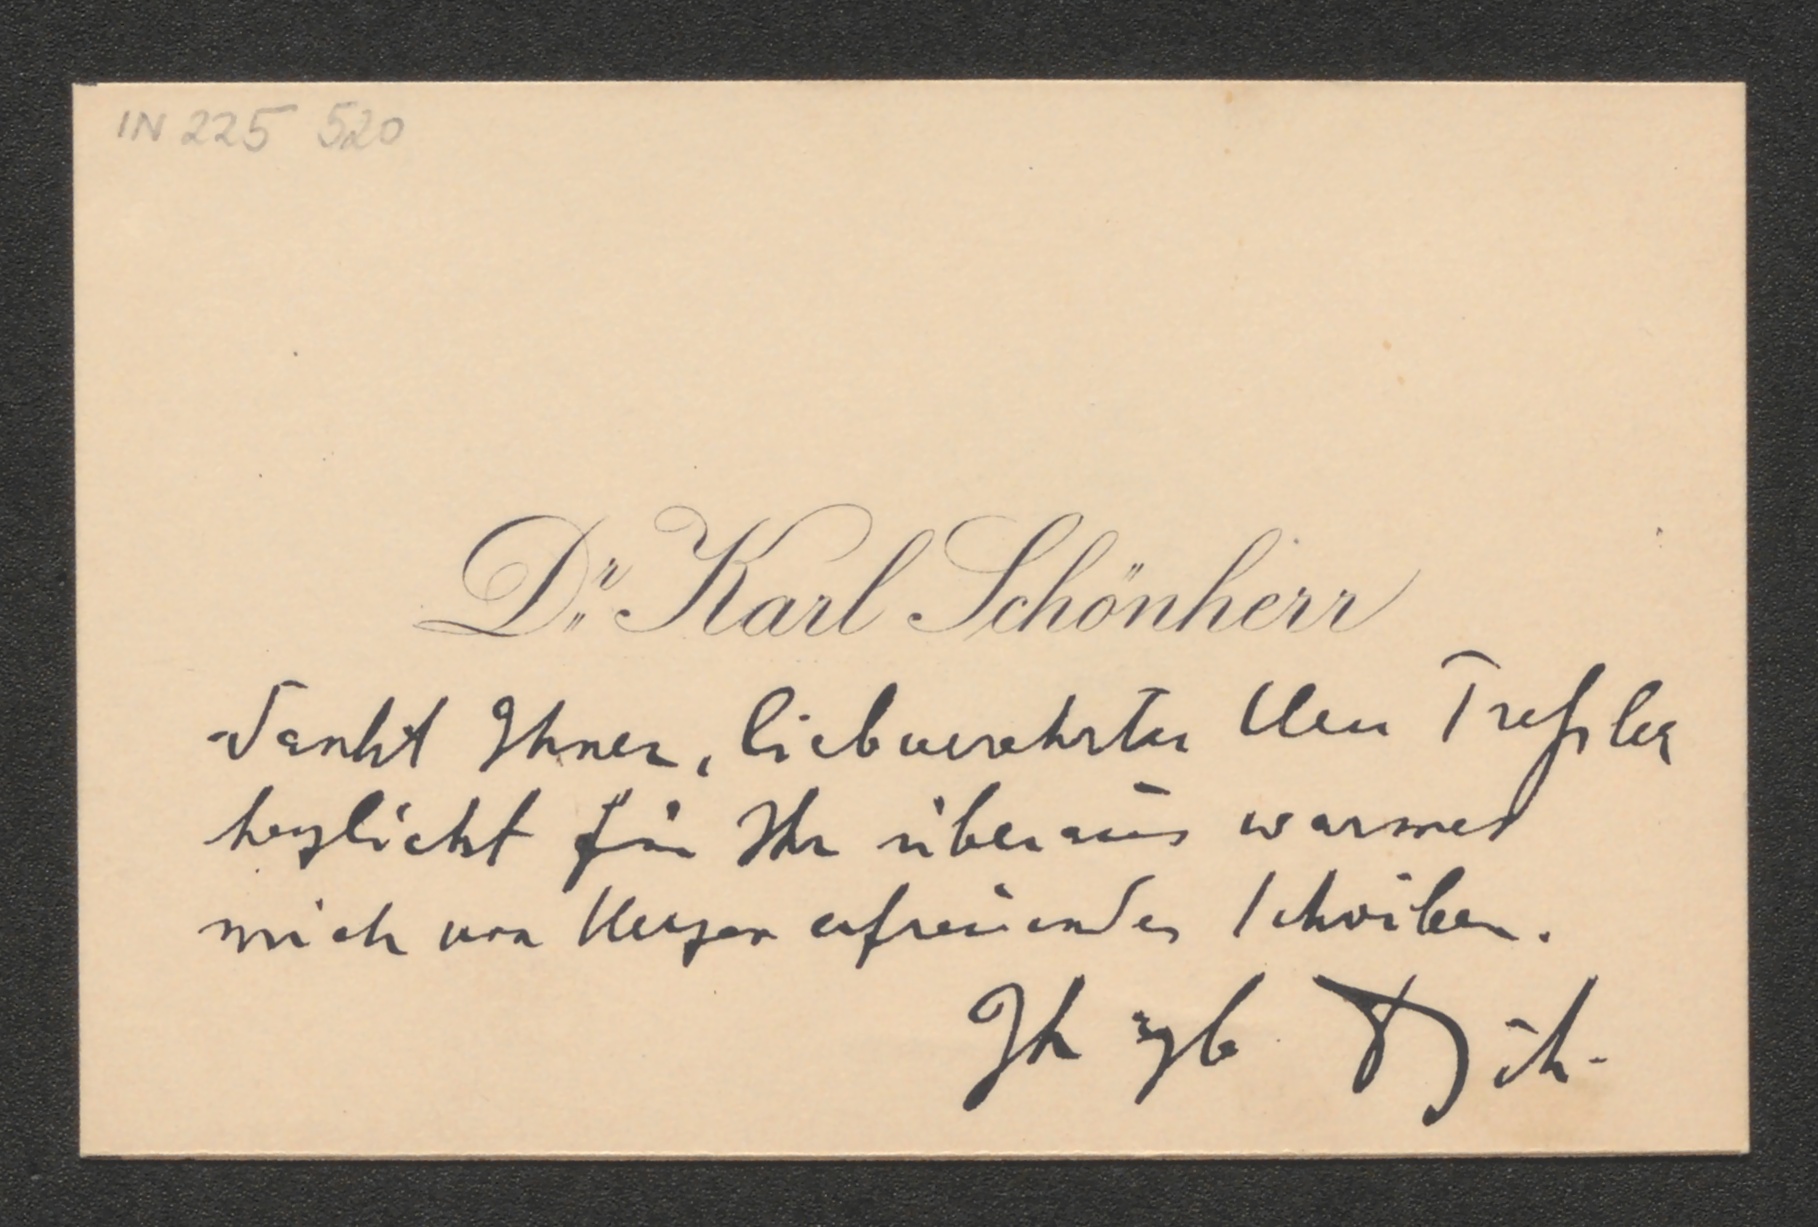 IN 225 520
Dr. Karl Schönherr
dankt Ihnen, liebverehrter Herr Treßler
herzlichst für Ihr überaus warmes
mich von Herzen erfreuendes Schreiben.
Ihr